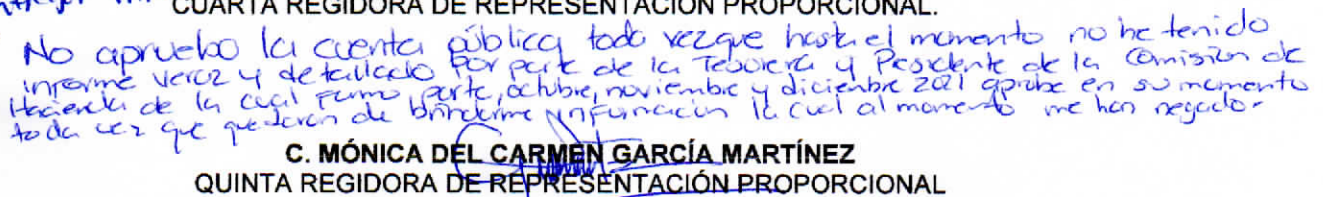 CUARTA REGIDORA DE REPRESENTACIÓN PROPORCIONAL.
No apruebo la cuenta pública toda vez que hasta el momento no he tenido
informe veraz y detallado por parte de la Tesorera y Presidente de la Comisión de
Hacienda de la cual formo parte, octubre, noviembre y diciembre 2021 aprobe en su momento
toda vez que quedaron de brindarme información la cual al momento me han negado.
C. MÓNICA DEL CARMEN GARCÍA MARTÍNEZ
QUINTA REGIDORA DE REPRESENTACIÓN PROPORCIONAL